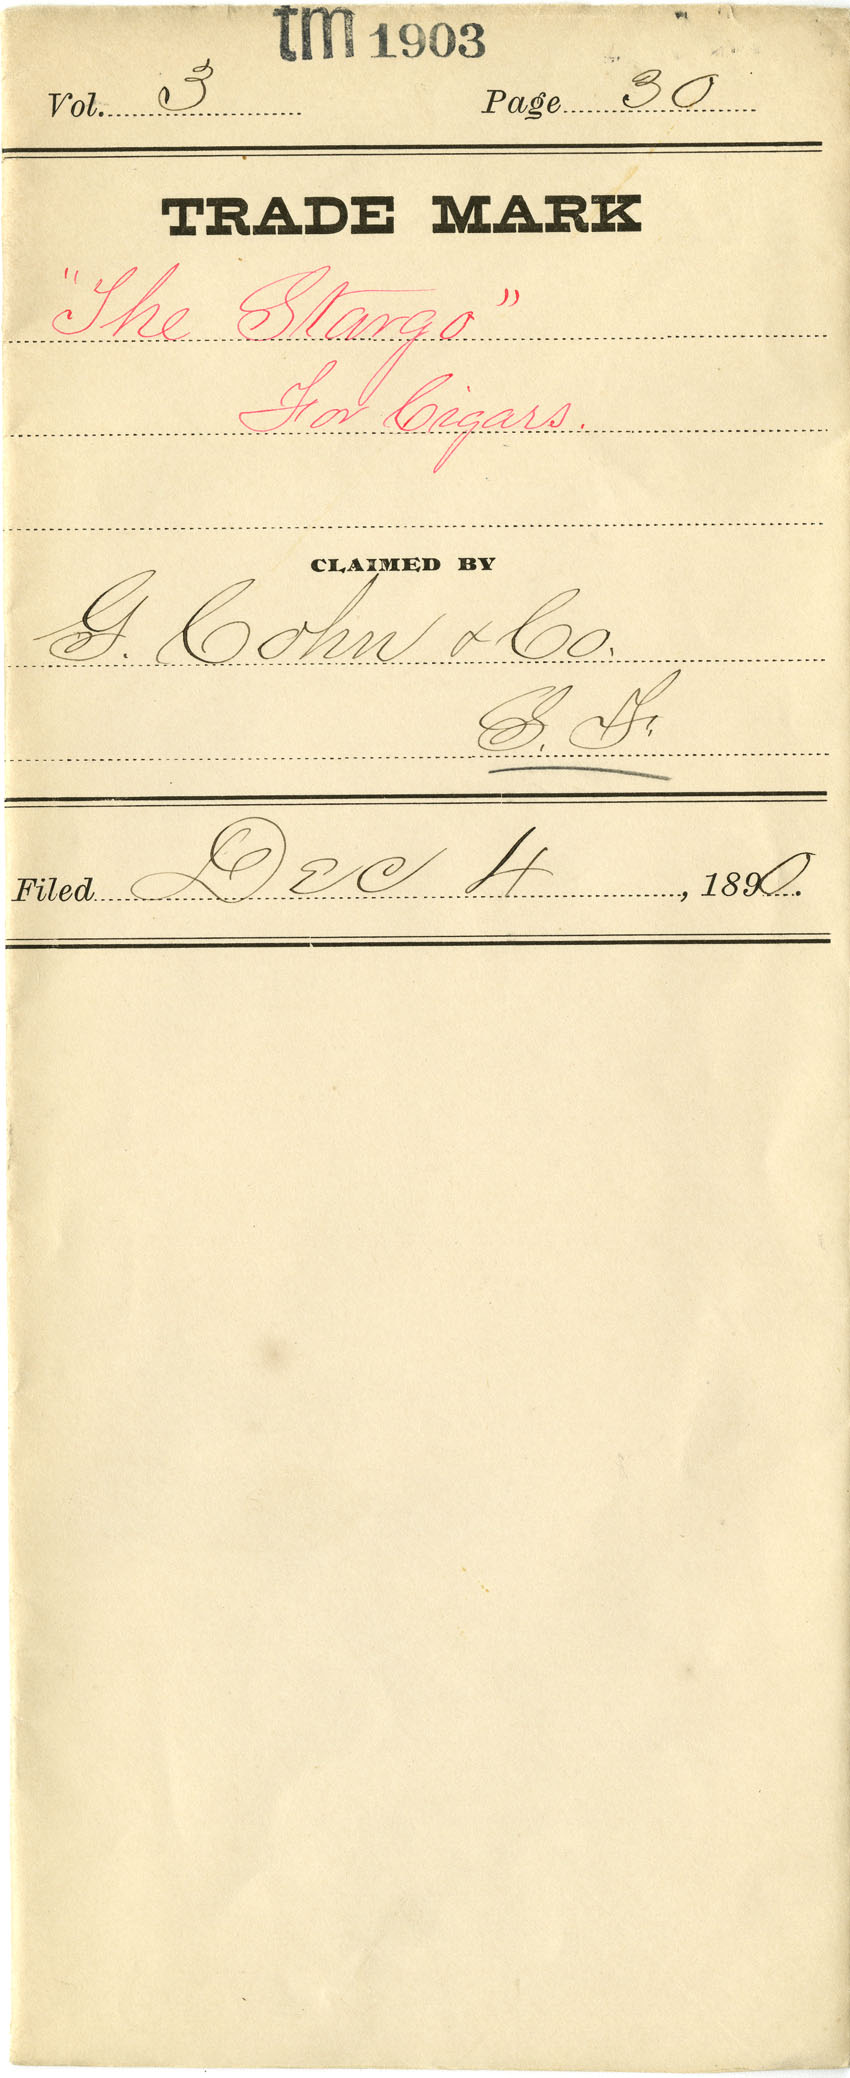 tm 1903
Vol. 3 Page 30
TRADE MARK
"The Stargo"
For Cigars.
CLAIMED BY
G. Cohn & Co.
S. F.
Filed Dec 4, 1890.